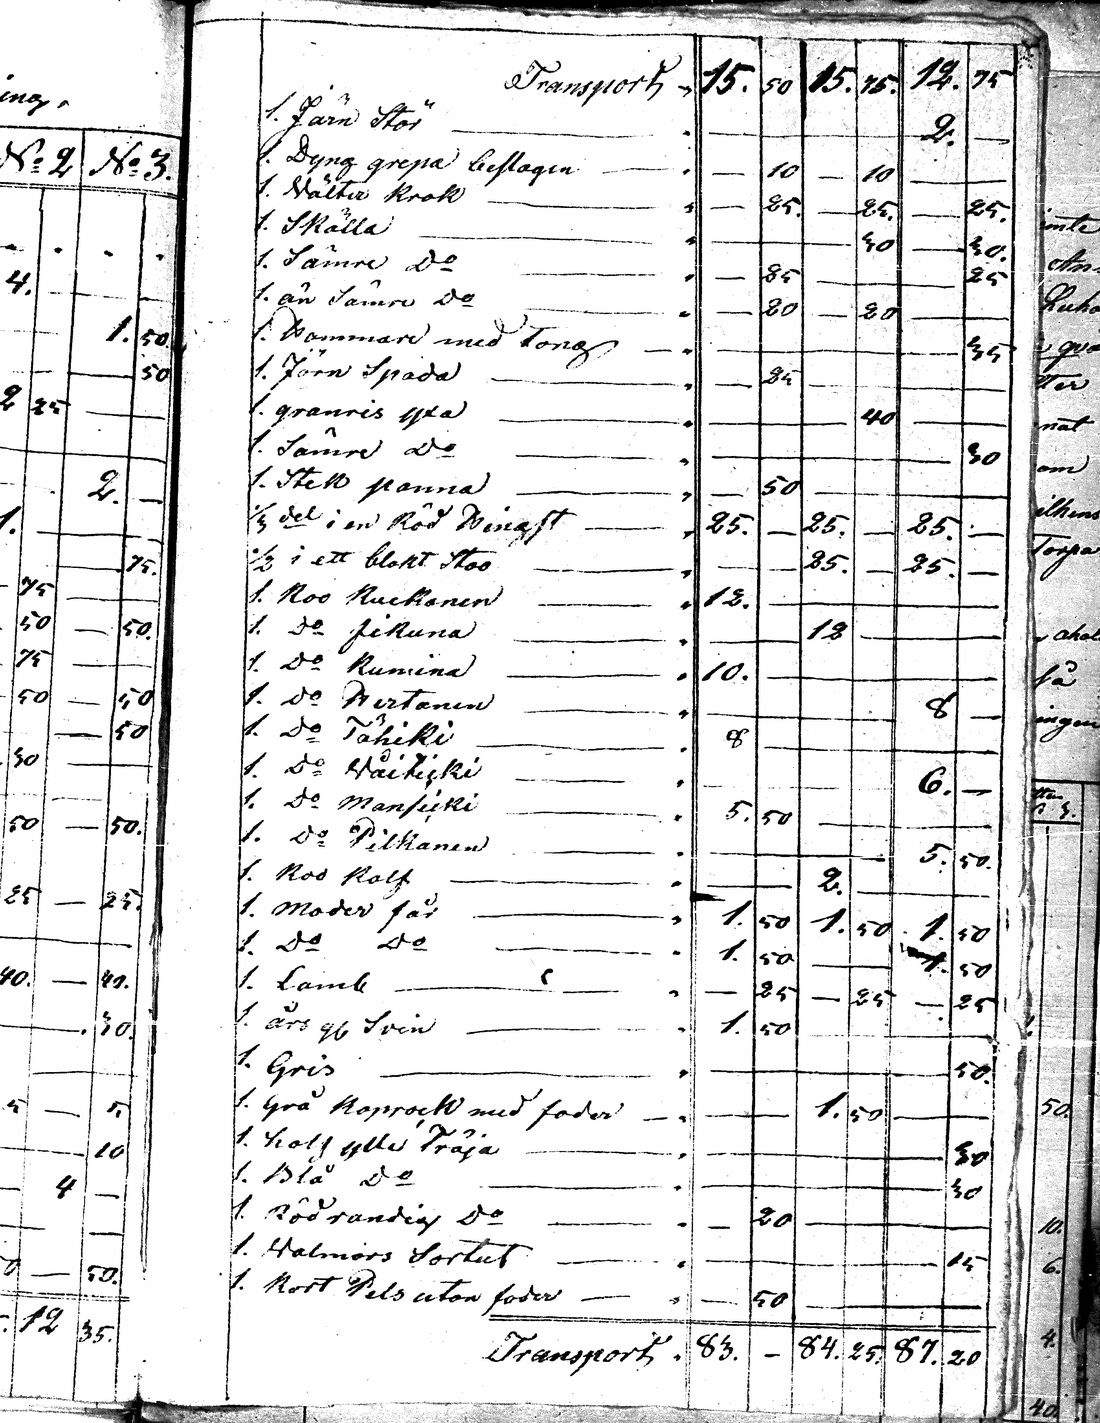 ing,
No 2 No 3.
4.
1. 50.
50
2 25 —
2. —
1. —
75.
75 —
50 — 50.
75 —
50 — 50
50
30
50 — 50.
25 — 25.
40. — 40.
30.
5 — 5
10
4 —
50 — 50.
12 35.
Transport „ 15. 50 15. 75. 12. 75
1. Järn Stör „ 2. —
1. Dyng grepa beslagen „ — 10 — 10
1. Wälter krok „ — 25. — 25. — 25.
1. Skälla „ 30 — 30.
1. Sämre Do „ — 25 25
1. än Sämre Do „ — 20 — 20
1. Hammare med Tong „ 35
1. Järn Spada „ 25
1. granris yxa „ 40
1. Sämre Do „ 30
1. Stek panna „ — 50
1/3 del i en Röd Hingst „ 25. — 25. — 25. —
1/2 i ett blakt Stoo „ 25. — 25. —
1. Koo Kuckanen „ 12.
1. Do Jikuna „ 12
1. Do Rumina „ 10.
1. Do Hertanen „ 8 —
1. Do Tähiki „ 8
1. Do Wäiticki „ 6. —
1. Do Mansicki „ 5. 50
1. Do Pilkanen „ 5. 50.
1. Koo Kalf „ 2.
1. Moder får „ 1. 50 1. 50 1. 50
1. Do Do „ 1. 50 1. 50
1. Lamb „ — 25 — 25 — 25
1. års gl Svin „ 1. 50
1. Gris „ 50.
1. Grå Kaprock med foder „ 1. 50
1. half ylle Tröja „ 30
1. Blå Do „ 30
1. Rödrandig Do „ — 20
1. Walmars Sortut „ 15
1. Kort Pels utan foder „ — 50
Transport „ 83. — 84. 25. 87. 20
inte
An-
ter
nat
om
ilkens
Torpa
så
ingen
50.
10.
6.
4.
40